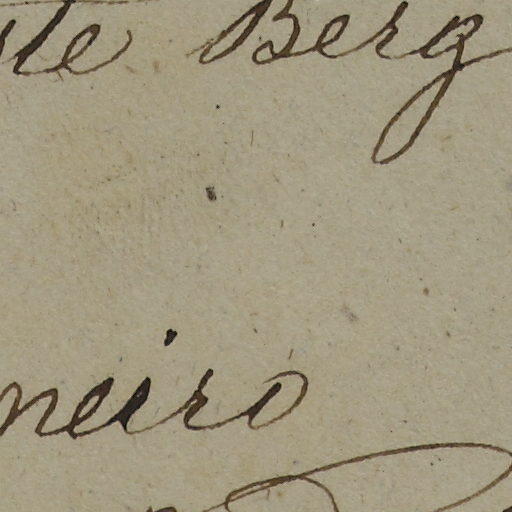 ste Berg
neiro